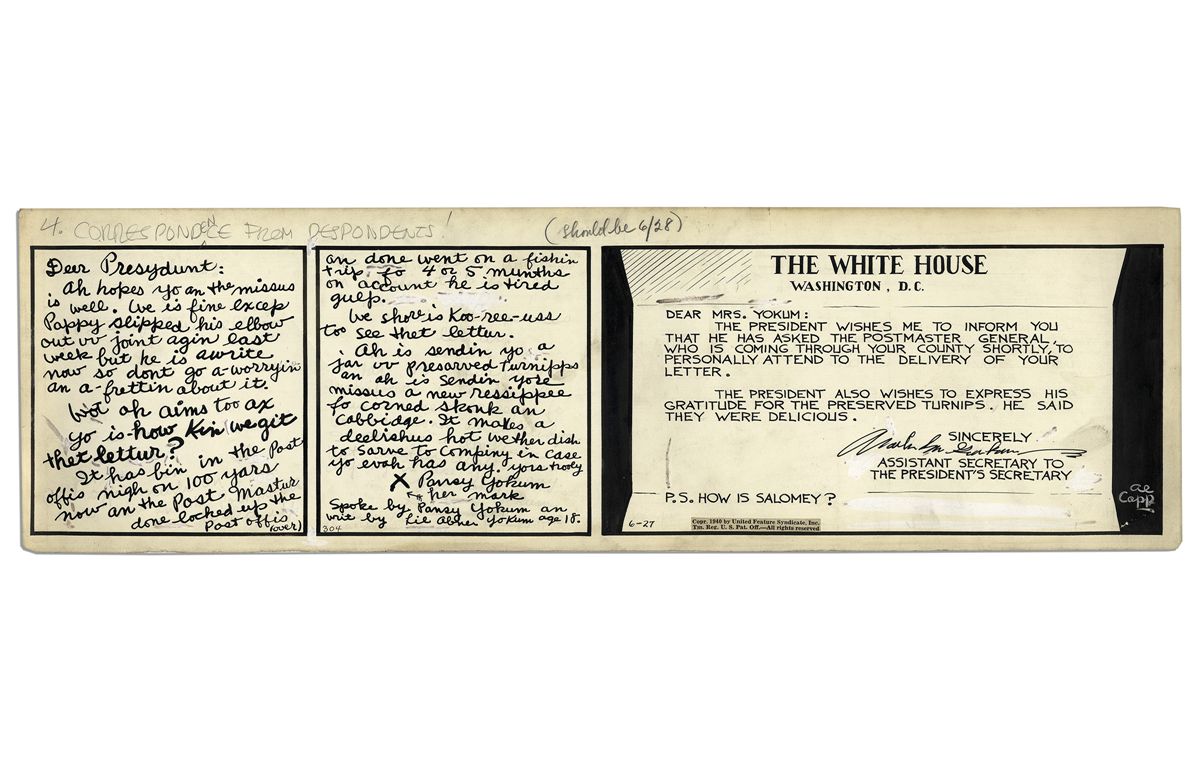 4. CORRESPONDENCE FROM DESPONDENTS!
(Should be 6/28)
Dear Presydunt:
Ah hopes yo an the missus
is well. We is fine excep
Pappy slipped his elbow
out uv joint agin last
week but he is awrite
now so dont go a-worryin
an a-frettin about it.
Wot ah aims too ax
yo is-how kin we git
thet lettur?
It has bin in the Post
offis nigh on 100 yars
now an the Post Mastur
done locked up the
Post offis
(over)
an done went on a fishin
trip fo 4 or 5 munths
on account he is tired
gulp.
We shore is Koo-ree-uss
too see thet lettur.
Ah is sendin yo a
jar uv presarved turnipps
an ah is sendin yore
missus a new ressippee
fo corned skonk an
cabbidge. It makes a
deelishus hot wether dish
to sarve to compiny in case
yo evah has any. yors trooly
X Pansy Yokum
her mark
Spoke by Pansy Yokum an
writ by Lil Abner Yokum age 18.
304
THE WHITE HOUSE
WASHINGTON, D.C.
DEAR MRS. YOKUM:
THE PRESIDENT WISHES ME TO INFORM YOU
THAT HE HAS ASKED THE POSTMASTER GENERAL,
WHO IS COMING THROUGH YOUR COUNTY SHORTLY, TO
PERSONALLY ATTEND TO THE DELIVERY OF YOUR
LETTER.
THE PRESIDENT ALSO WISHES TO EXPRESS HIS
GRATITUDE FOR THE PRESERVED TURNIPS. HE SAID
THEY WERE DELICIOUS.
SINCERELY
ASSISTANT SECRETARY TO
THE PRESIDENT'S SECRETARY
P.S. HOW IS SALOMEY?
6-27
Copr. 1940 by United Feature Syndicate, Inc.
Tm. Reg. U. S. Pat. Off.—All rights reserved
al
Capp